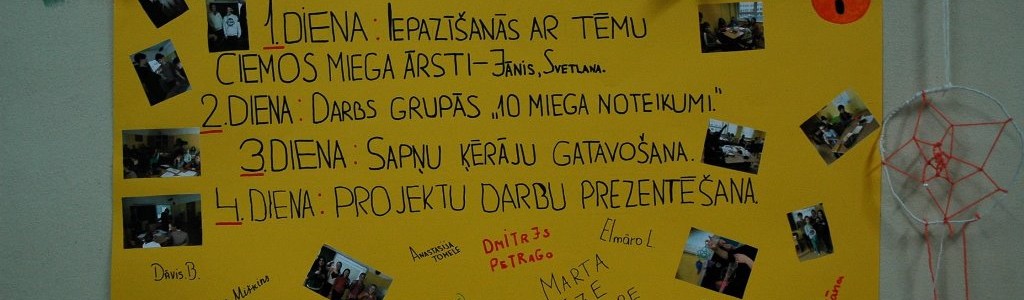 1.DIENA: IEPAZĪŠANĀS AR TĒMU
CIEMOS MIEGA ĀRSTI-JĀNIS, SVETLANA.
2.DIENA: DARBS GRUPĀS „10 MIEGA NOTEIKUMI."
3.DIENA: SAPŅU ĶĒRĀJU GATAVOŠANA.
4.DIENA: PROJEKTU DARBU PREZENTĒŠANA.
ANASTASIJA
TOMELE
DMITRJS
PETRAGO
Elmāro L
DĀVIS.B.
MARTA